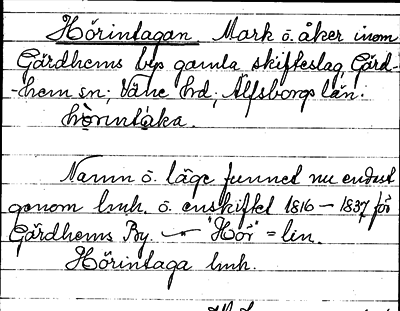 Hörintagan. Mark o. åker inom
Gärdhems bys gamla skifteslag, Gärd-
-hem sn; Väne hd; Älfsborgs län.
hö̀rıntáka.
Namn o. läge funnet nu endast
genom lmh. o. enskiftet 1816 – 1837 för
Gärdhems By. — "Hör" = lin.
Hörintaga lmh.